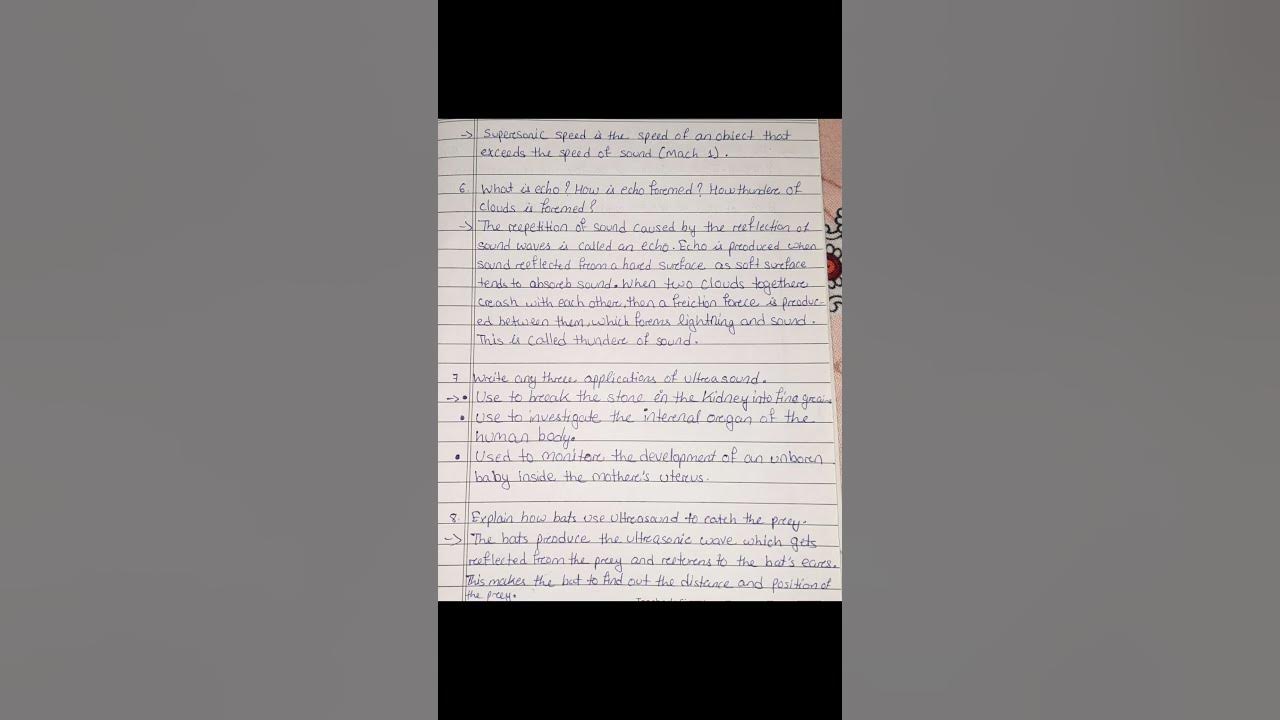 -> Supersonic speed is the speed of an object that
exceeds the speed of sound (Mach 1).
6. What is echo? How is echo formed? How thunder of
clouds is formed?
-> The repetition of sound caused by the reflection of
sound waves is called an echo. Echo is produced when
sound reflected from a hard surface as soft surface
tends to absorb sound. When two clouds together
crash with each other, then a friction force is produc-
ed between them, which forms lightning and sound.
This is called thunder of sound.
7 Write any three applications of ultrasound.
-> • Use to break the stone in the Kidney into fine grain.
• Use to investigate the internal organ of the
human body.
• Used to monitor the development of an unborn
baby inside the mother's uterus.
8. Explain how bats use ultrasound to catch the prey.
-> The bats produce the ultrasonic wave which gets
reflected from the prey and returns to the bat's ears.
This makes the bat to find out the distance and position of
the prey.